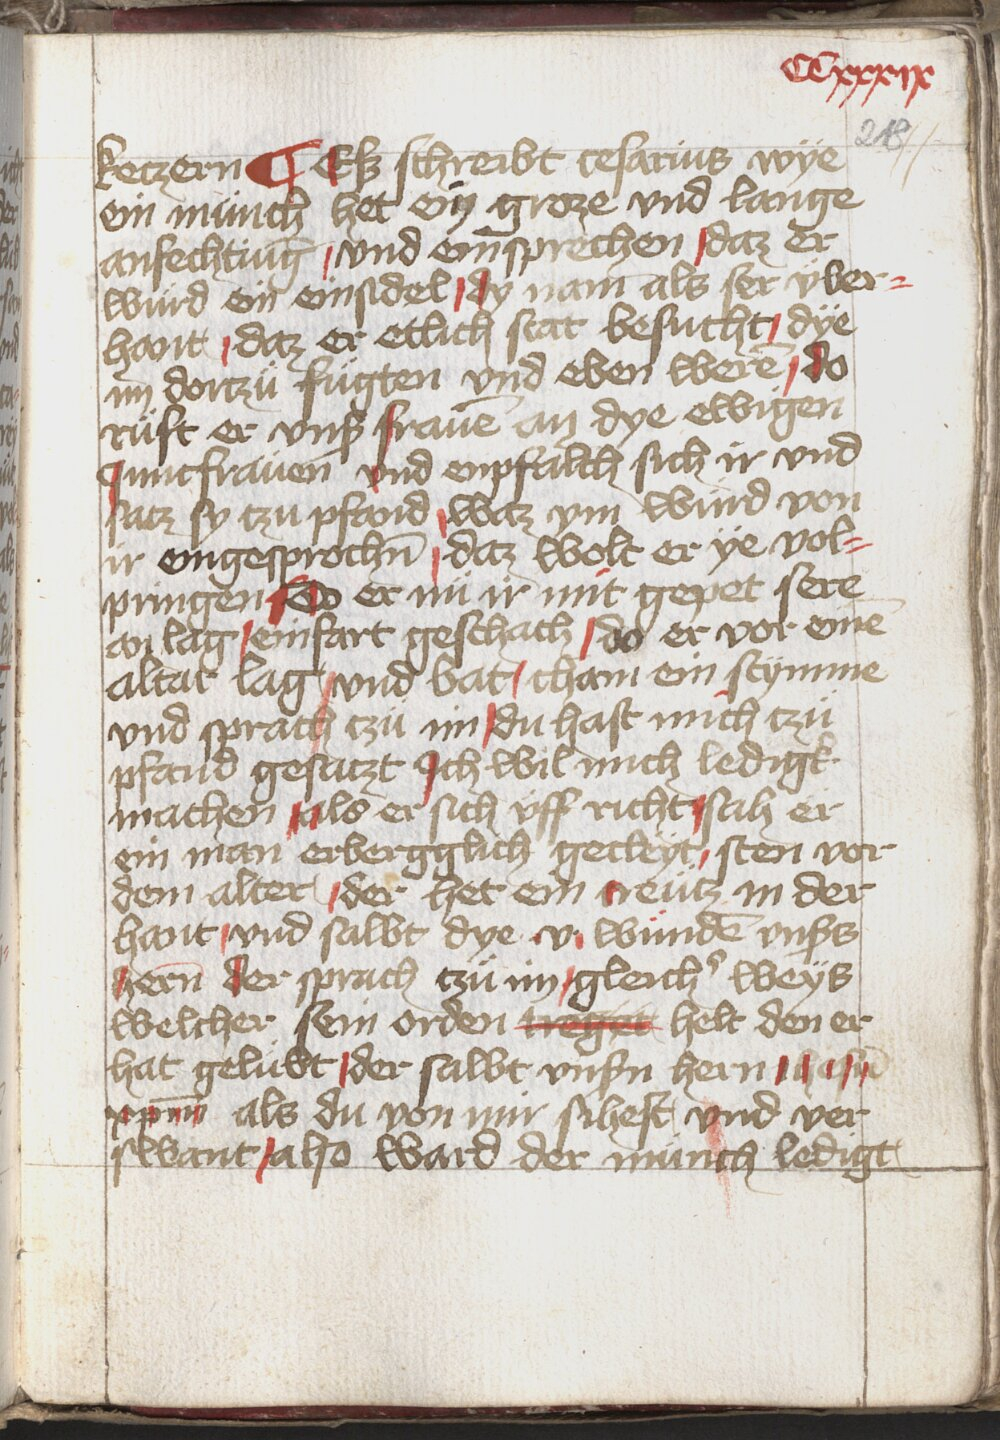 CCxxxix
218
ketzern ¶ Eß schreibt cesarius wye
ein münch het ein groze vnd lange
anfechtung / vnd einsprechen / daz er
würd ein einsidel / dy nam als ser vber=
hant / daz er etlich stat besucht / dye
im dortzü fügten vnd eben werē / do
rüft er vnß frauē an dye ewigen
Junckfrauen vnd enpfalch sich ir vnd
satz sy tzu pfand / waz ym würd von
ir eingesprochn̄ / daz wolt er ye vol=
pringen / Do er nü ir mit gepet sere
an lag / ein fart geschach / do er vor einē
altar lag / vnd bat / cham ein stymme
vnd sprach tzü im / du hast mich tzü
pfand gesatzt Ich wil mich ledigk
machen / als er sich vff richt / sah er
ein man erbergglich gecleyt / sten vor
dem alter / der het ein creütz in der
hant / vnd salbt dye .v. wundē vnßs
hern der sprach tzü im / gleichs weys
welcher sein orden treget helt den er
hat gelübt / der salbt vnßn hern
xpm̄ als du von mir sihest vnd ver
swant / also ward der münch ledigt